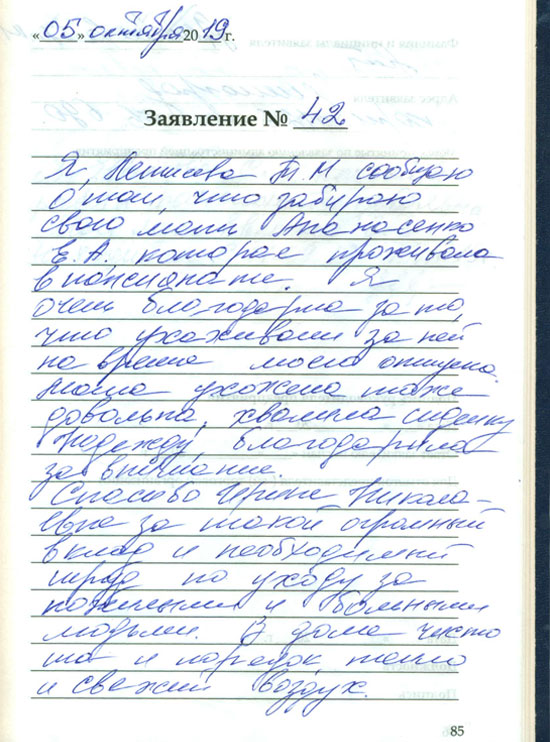 «05» октября 2019 г.
Заявление № 42
Я, Т. Н. сообщаю
о том, что забираю
свою маму Апанасенко
Е. А., которая проживала
в пансионате. Я
очень благодарна за то,
что ухаживали за ней
на время моего отпуска.
Мама ухожена также
довольна, хвалила сиделку
Надежду, благодарила
за внимание.
Спасибо Ирине Никола-
евне за такой огромный
вклад и необходимый
труд по уходу за
пожилыми и больными
людьми. В доме чисто
та и порядок, тепло
и свежий воздух.
85